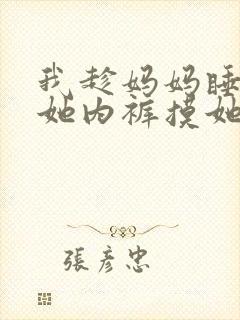 我趁妈妈睡
她内裤摸她
張彦忠